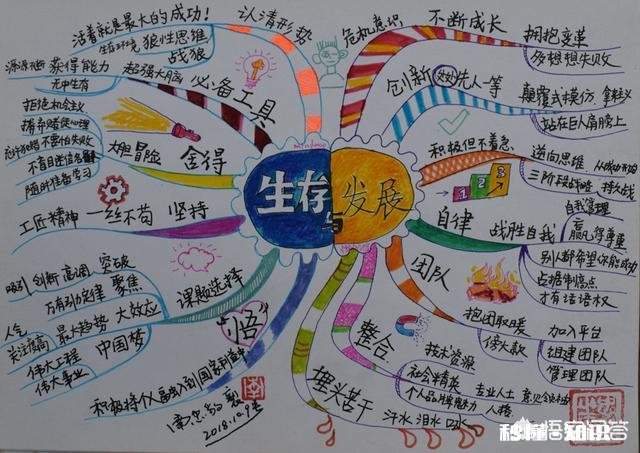 生存与发展
认清形势
活着就是最大的成功!
生存环境 狼性思维
战狼
必备工具
获得能力 超强大脑
无中生有
舍得
大胆冒险
不要怕失败
随时准备学习
坚持
一丝不苟
工匠精神
课题选择
吸引 创新 高调 突破
万有引定律 聚焦
最大趋势 大效应
人气
关注度高
中国梦
伟大工程
伟大事业
悟
2018.10.9
危机意识 不断成长
拥抱变革
多想想失败
创新 处处先人一等
颠覆式模仿 拿来主义
站在巨人肩膀上
积极但不着急
逆向思维 从成功开始
三阶段战略 持久战
1 2 3
自律
战胜自我
自我管理
赢得尊重
别人都希望你能成功
占据制高点
才有话语权
团队
抱团取暖
傍大款
加入平台
组建团队
管理团队
整合
技术资源
社会精英 专业人士 意见领袖
个人品牌魅力 人格
埋头苦干
汗水 泪水 口水
悟空问答
秒懂 知识